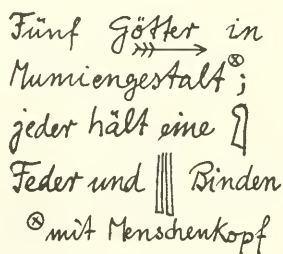 Fünf Götter in
Mumiengestalt⊗;
jeder hält eine
Feder und Binden
⊗mit Menschenkopf